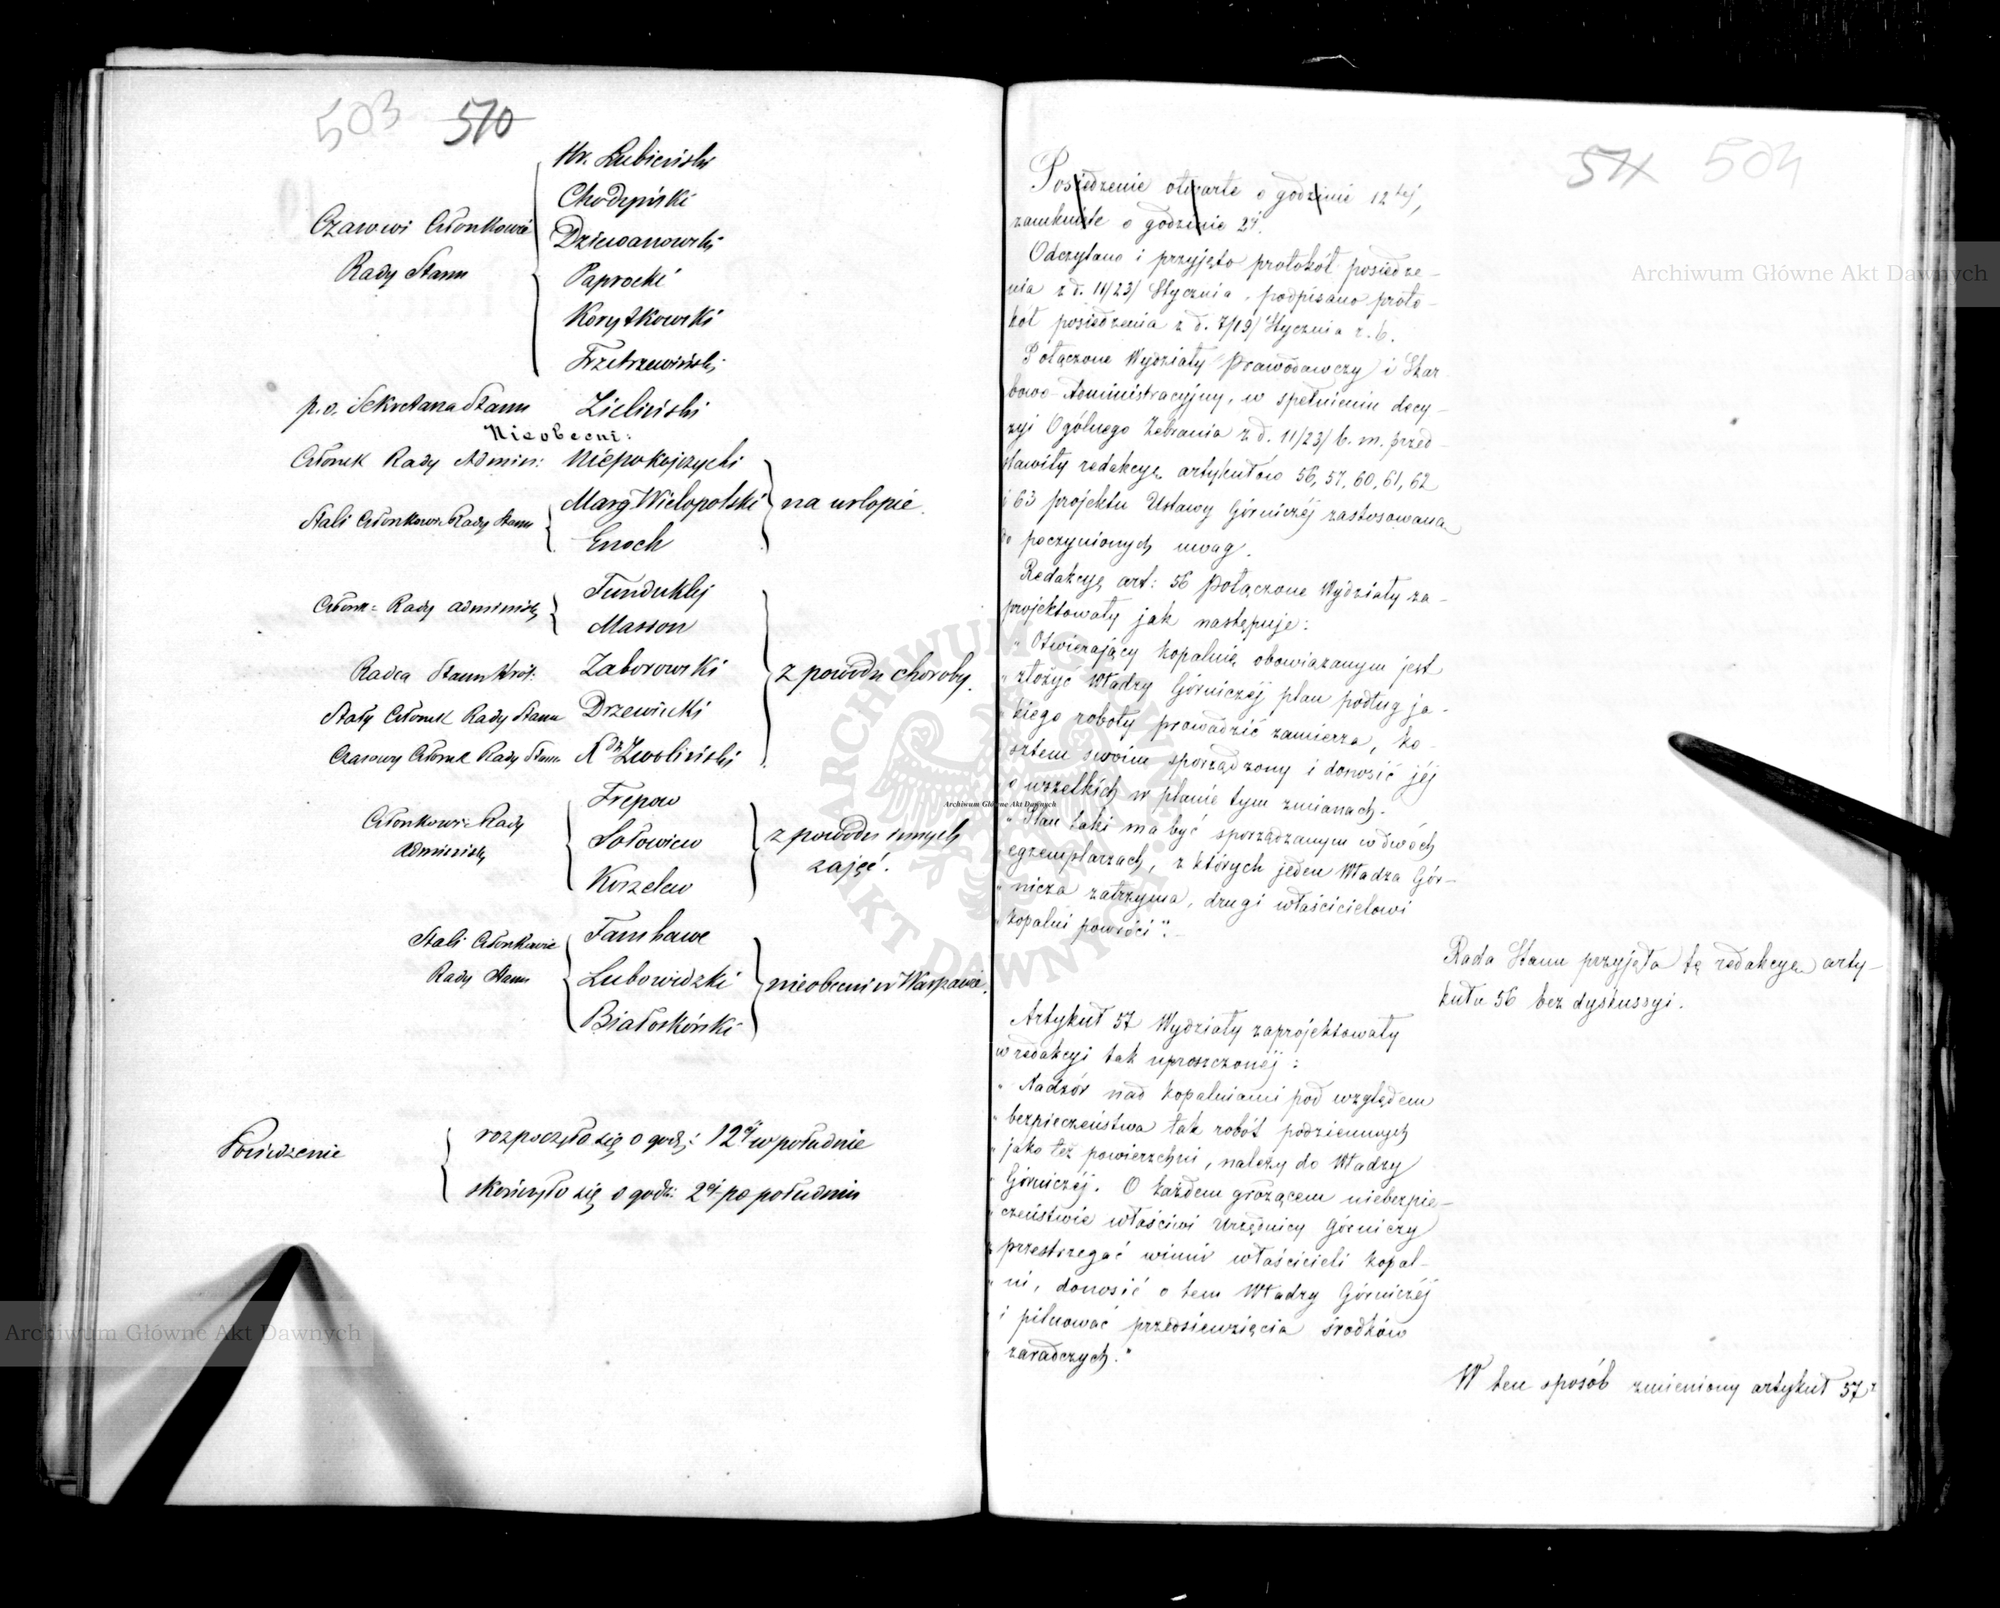 503 510
Hr. Łubieński
Chodzyński
Czasowi Członkowie Dziewanowski
Rady Stanu Paprocki
Korytkowski
Trzetrzewiński
p.o. Sekretarza Stanu Zieliński
Nieobecni:
Członek Rady Admin: Niepokojczycki
Stali Członkowie Rady Stanu Marg. Wielopolski na urlopie.
Enoch
Członk= Rady administ. Funduklej
Masson
Radca Stanu Król: Zaborowski z powodu choroby.
Stały Członek Rady Stanu Drzewiecki
Czasowy Członek Rady Stanu Zwoliński
Członkowie Rady Trepow
Administ. Sołowiew z powodu innych
Korzelew zajęć.
Stali Członkowie Fanshawe
Rady Stanu Lubowidzki nieobecni w Warszawie.
Białoskórski
Posiedzenie rozpoczęło się o godz: 12éj w południe
skończyło się o godz: 2éj po południu
511 504
Posiedzenie otwarte o godzinie 12tej,
zamknięte o godzinie 2éj.
Odczytano i przyjęto protokół posiedze-
nia z d. 11/23/ Stycznia, podpisano proto-
kół posiedzenia z d. 7/19/ Stycznia r. b.
Połączone Wydziały Prawodawczy i Skar
bowo-Administracyjny, w spełnieniu decy-
zyi Ogólnego Zebrania z d. 11/23/ b. m. przed-
stawiły redakcyę artykułów 56, 57, 60, 61, 62
i 63 projektu Ustawy Górniczéj zastosowaną
do poczynionych uwag.
Redakcyę art: 56 Połączone Wydziały za-
projektowały jak następuje:
"Otwierający kopalnię obowiązanym jest
"złożyć Władzy Górniczéj plan podług ja-
"kiego roboty prowadzić zamierza, ko-
"sztem swoim sporządzony i donosić jéj
"o wszelkich w planie tym zmianach.
"Plan taki ma być sporządzanym w dwóch
"egzemplarzach, z których jeden Władza Gór-
"nicza zatrzyma, drugi właścicielowi
"kopalni powróci".
Rada Stanu przyjęła tę redakcyę arty-
kułu 56 bez dyskussyi.
Artykuł 57 Wydziały zaprojektowały
w redakcyi tak uproszczonéj:
"Nadzór nad kopalniami pod względem
"bezpieczeństwa tak robót podziemnych
"jako też powierzchni, należy do Władzy
"Górniczéj. O każdem grożącem niebezpie-
"czeństwie właściwi Urzędnicy Górniczy
"przestrzegać winni właścicieli kopal-
"ni, donosić o tem Władzy Górniczéj
"i pilnować przedsięwzięcia środków
"zaradczych."
W ten sposób zmieniony artykuł 57
Archiwum Główne Akt Dawnych
Archiwum Główne Akt Dawnych
Archiwum Główne Akt Dawnych
ARCHIWUM GŁÓWNE AKT DAWNYCH